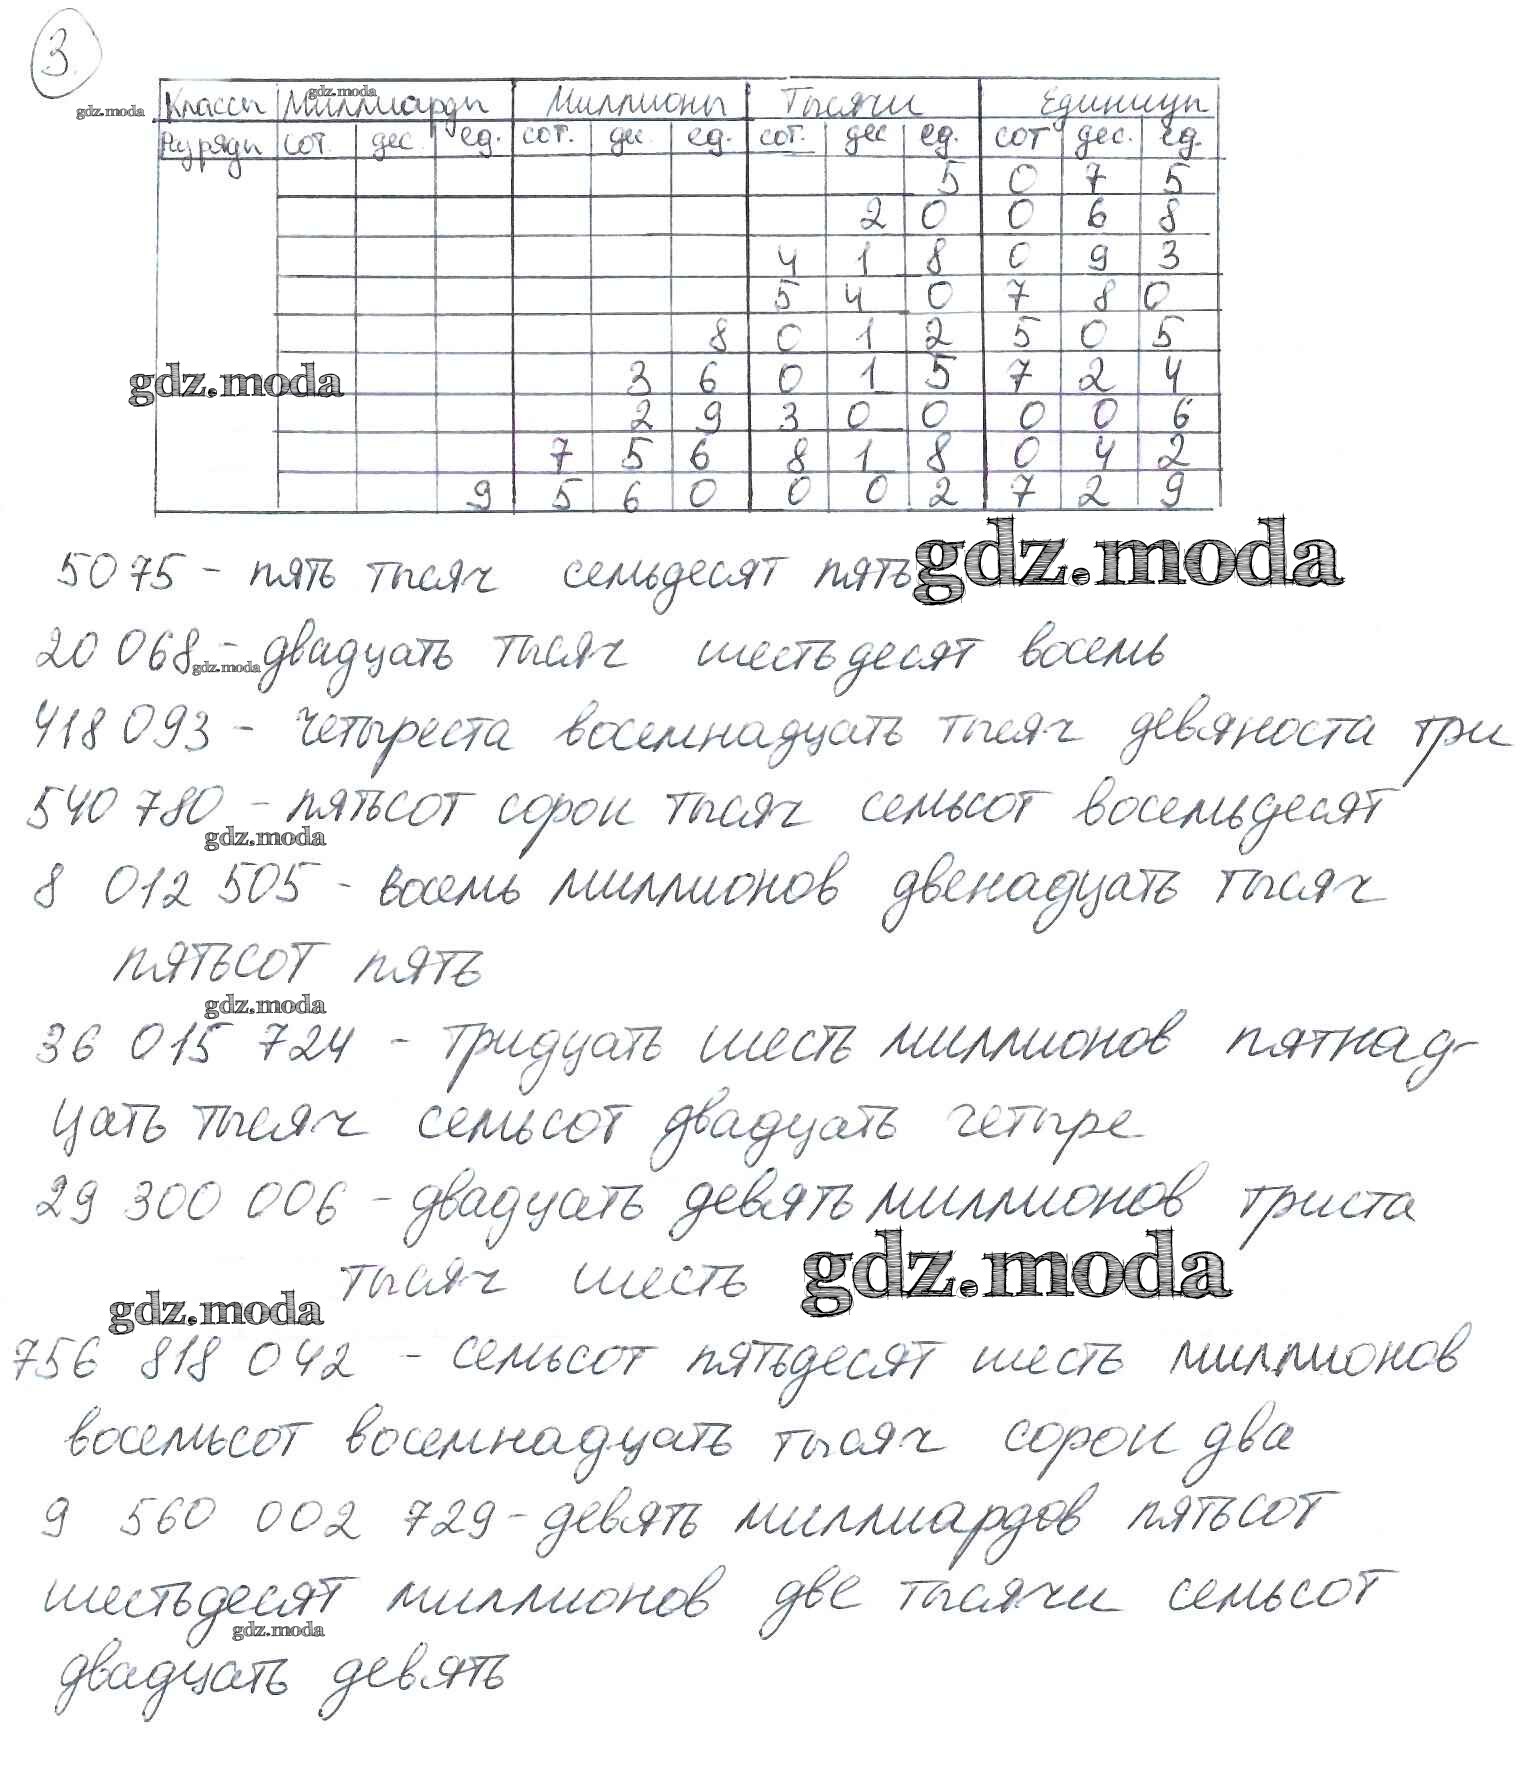 3.
gdz.moda
gdz.moda
Классы Миллиарды Миллионы Тысячи Единицы
Разряды сот. дес. ед. сот. дес. ед. сот. дес ед. сот дес. ед.
5 0 7 5
2 0 0 6 8
4 1 8 0 9 3
5 4 0 7 8 0
8 0 1 2 5 0 5
3 6 0 1 5 7 2 4
gdz.moda
2 9 3 0 0 0 0 6
7 5 6 8 1 8 0 4 2
9 5 6 0 0 0 2 7 2 9
5075 - пять тысяч семьдесят пять
gdz.moda
20 068 - двадцать тысяч шестьдесят восемь
gdz.moda
418 093 - четыреста восемнадцать тысяч девяноста три
540 780 - пятьсот сорок тысяч семьсот восемьдесят
gdz.moda
8 012 505 - восемь миллионов двенадцать тысяч
пятьсот пять
gdz.moda
36 015 724 - тридцать шесть миллионов пятнад-
цать тысяч семьсот двадцать четыре
29 300 006 - двадцать девять миллионов триста
тысяч шесть
gdz.moda
gdz.moda
756 818 042 - семьсот пятьдесят шесть миллионов
восемьсот восемнадцать тысяч сорок два
9 560 002 729 - девять миллиардов пятьсот
шестьдесят миллионов две тысячи семьсот
gdz.moda
двадцать девять